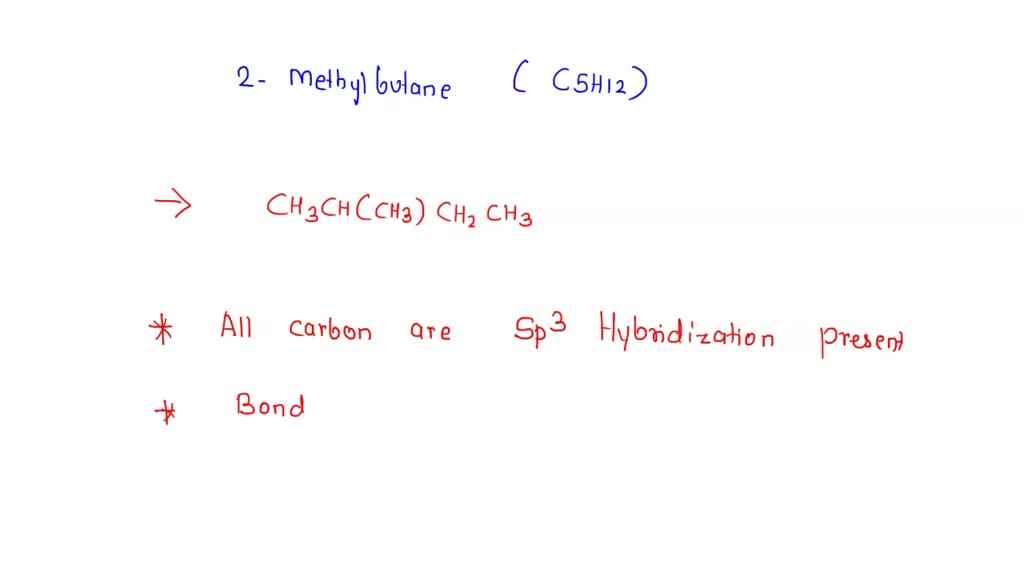 2- Methylbutane ( C5H12)
→ CH3CH(CH3) CH2 CH3
* All carbon are Sp3 Hybridization present
* Bond